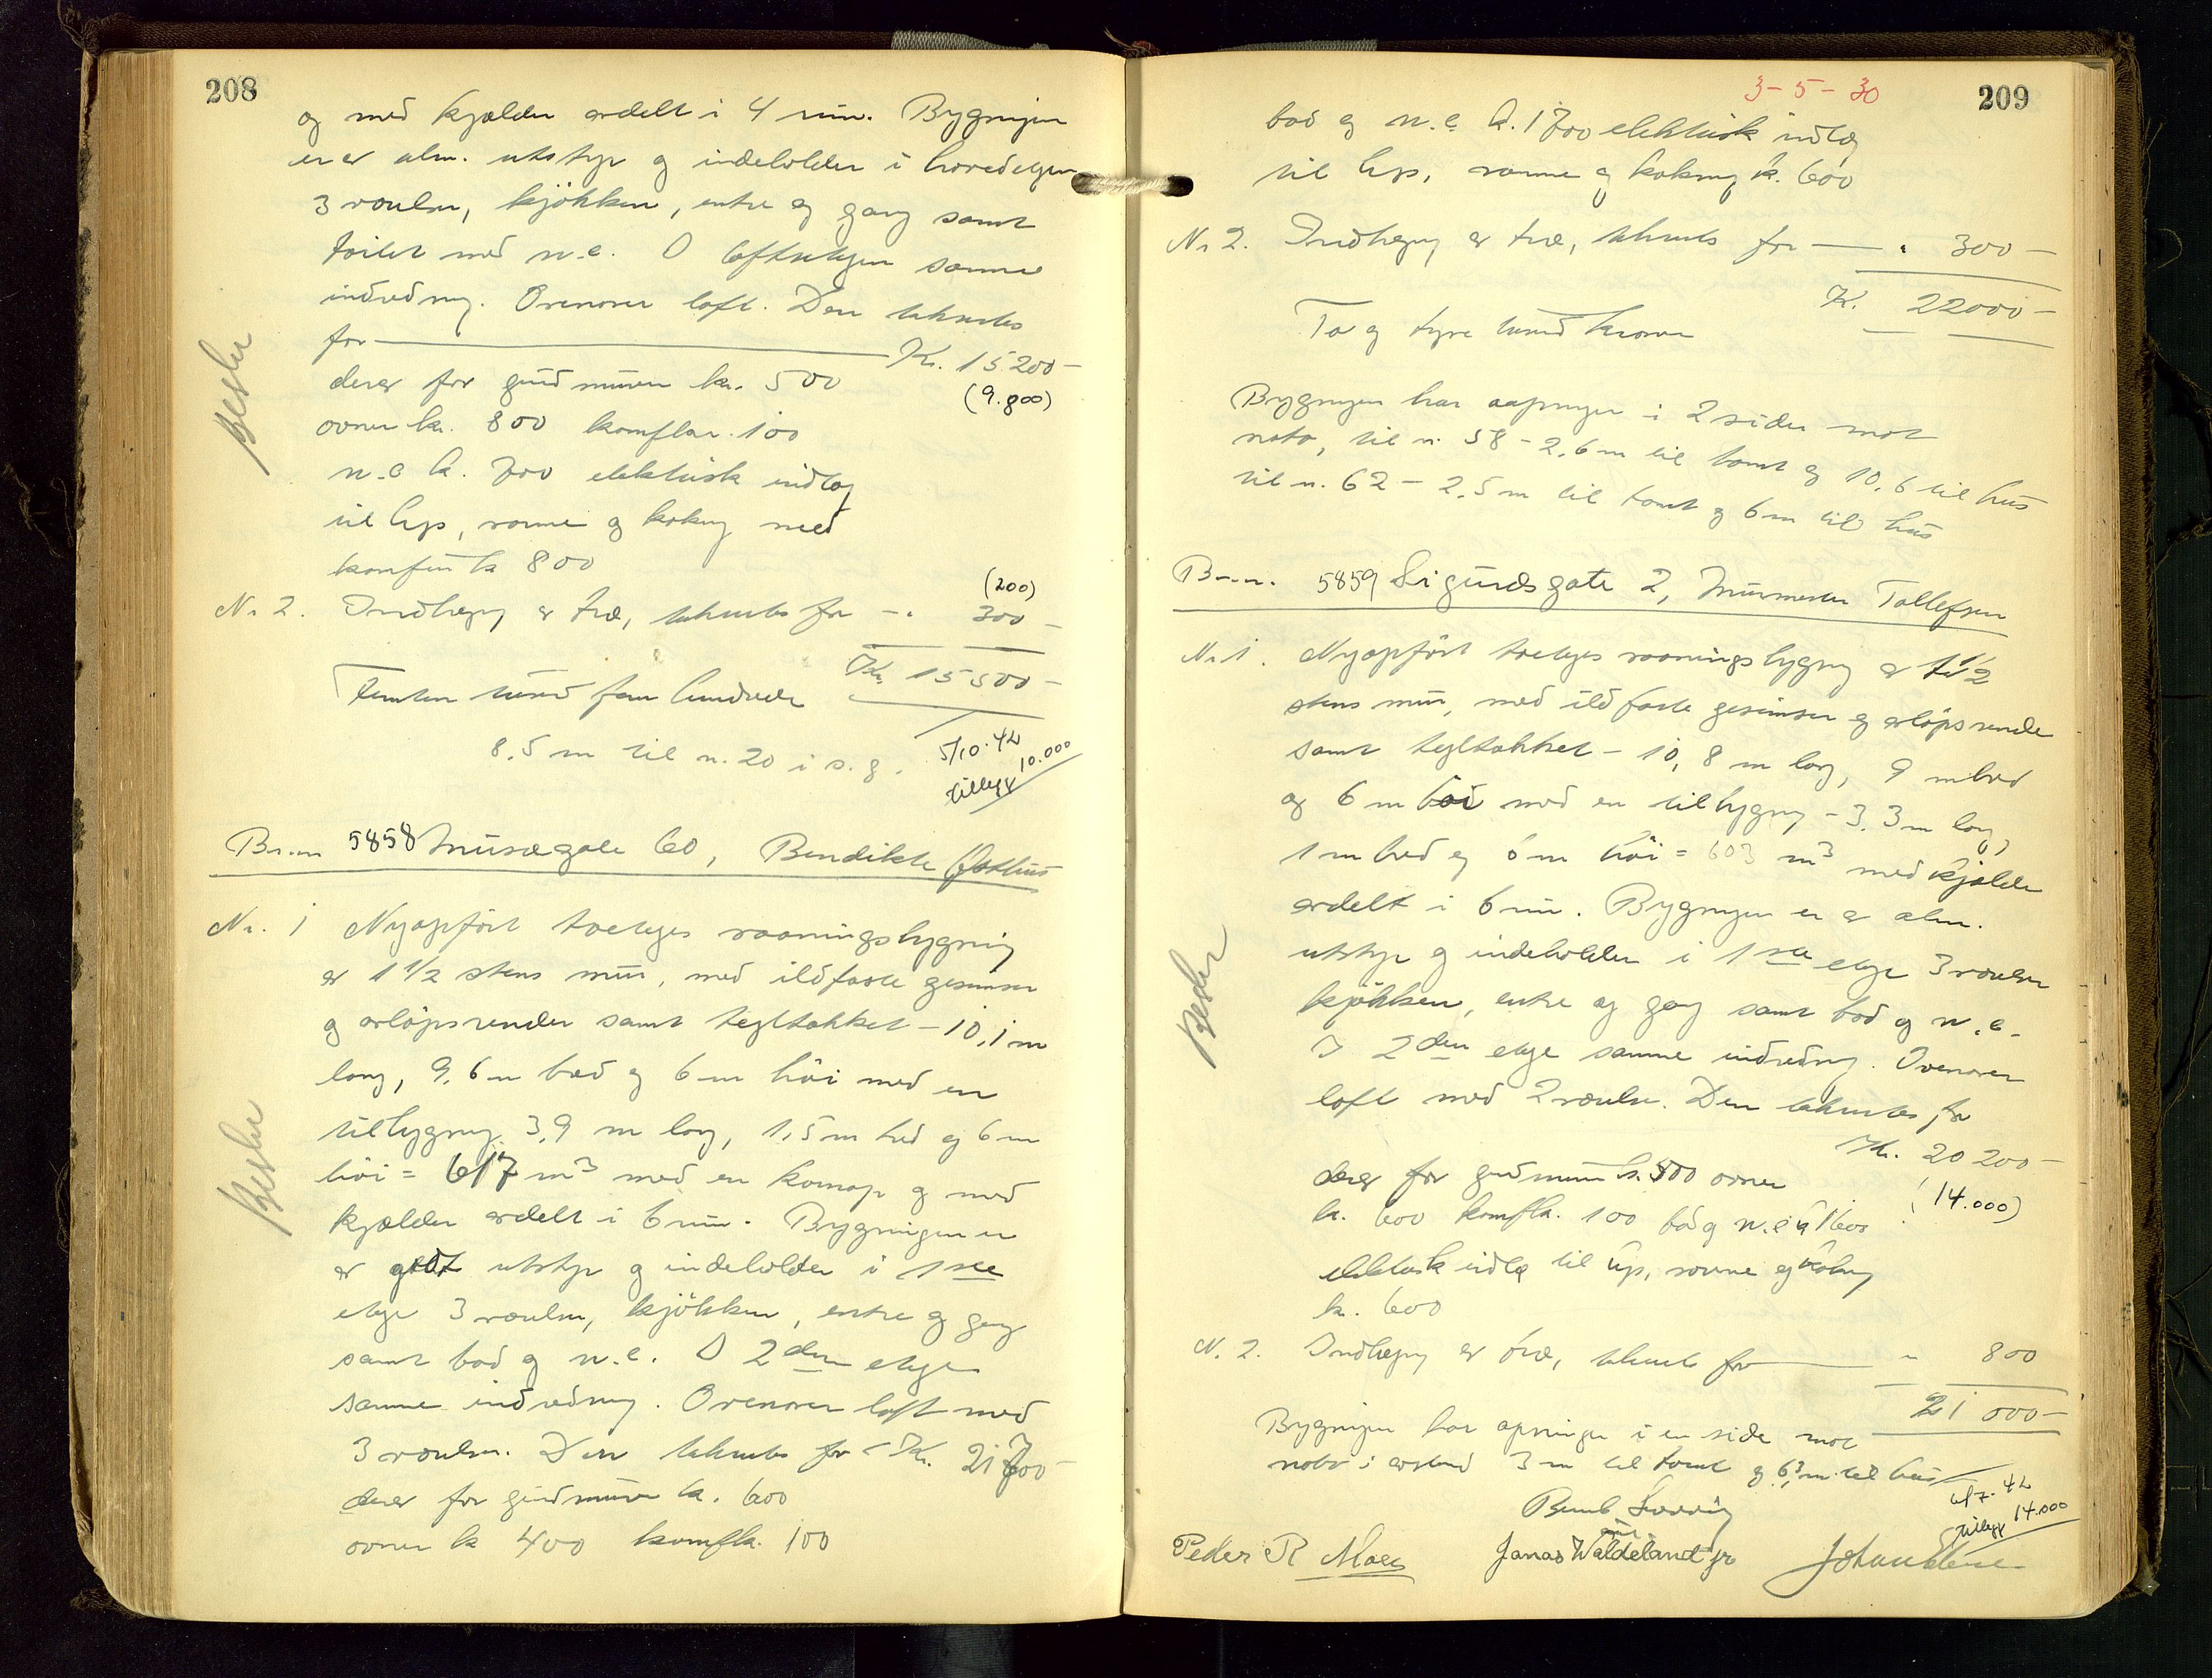 208
og med kjælder avdelt i 4 rum. Bygningen
er av alm. utstyr og indeholder i hovedetagen
3 værelser, kjøkken, entre og gang samt
toilet med w.c. I loftsetagen samme
indredning. Ovenover loft. Den taksertes
for Kr. 15200-
derav for grundmuren kr. 500 (9.800)
ovner kr. 800 komfkr. 100
w.c kr. 700 elektrisk indlæg
til lys, varme og kokning med
komfur kr 800
(200)
Nr 2. Indhegning av træ, taksertes for - " 300-
Kr. 15500-
Femten tusind fem hundrede
8.5 m til nr. 20 i s. g.
5/10.42
tillegg 10.000
Besler
Br.nr 5858 Musægate 60, Bendikte Østhus
Nr. 1 Nyopført toetages vaaningsbygning
av 1 1/2 stens mur, med ildfaste gesimser
og avløpsrender samt tegltakket - 10,1 m
lang, 9,6 m bred og 6 m høi med en
tilbygning 3,9 m lang, 1,5 m bred og 6 m
høi = 617 m³ med en kornap og med
kjælder avdelt i 6 rum. Bygningen er
av godt utstyr og indeholder i 1ste
etage 3 værelser, kjøkken, entre og gang
samt bad og w.c. I 2den etage
samme indredning. Ovenover loft med
3 værelser. Den taksertes for - Kr. 21700-
derav for grundmuren kr. 600
ovner kr 400 komfkr. 100
Beske
3-5-30
209
bad og w.c. kr. 1700 elektrisk indlæg
til lys, varme og kokning kr. 600
Nr 2. Indhegning av træ, taksertes for - " 300-
Kr. 22000-
To og tyve tusind kroner
Bygningen har aapninger i 2 sider mot
nabo, til nr. 58 - 2,6 m til tomt og 10,6 til hus
til nr. 62 - 2,5 m til tomt og 6 m til hus
Br.nr. 5859 Sigurdsgate 2, Murmester Tollefsen
Nr 1. Nyopført toetages vaaningsbygning av 1 1/2
stens mur, med ildfaste gesimser og avløpsrender
samt tegltakket - 10,8 m lang, 9 m bred
og 6 m høi med en tilbygning - 3,3 m lang,
1 m bred og 6 m høi = 603 m³ med kjælder
avdelt i 6 rum. Bygningen er av alm.
utstyr og indeholder i 1ste etage 3 værelser
kjøkken, entre og gang samt bad og w.c.
I 2den etage samme indredning. Ovenover
loft med 2 værelser. Den taksertes for
Kr. 20200-
derav for grundmuren kr. 500 ovner (14.000)
kr. 600 komfkr. 100 bad og w.c kr 1600
elektrisk indlæg til lys, varme og kokning
kr. 600
Nr. 2. Indhegning av træ, taksertes for - " 800
21000-
Bygningen har apninger i en side mot
nabo i avstand 3 m til tomt og 6,3 m til hus
6/7.42
tillegg 14.000
Besler
Peder R Moes Jonas Waldeland jr